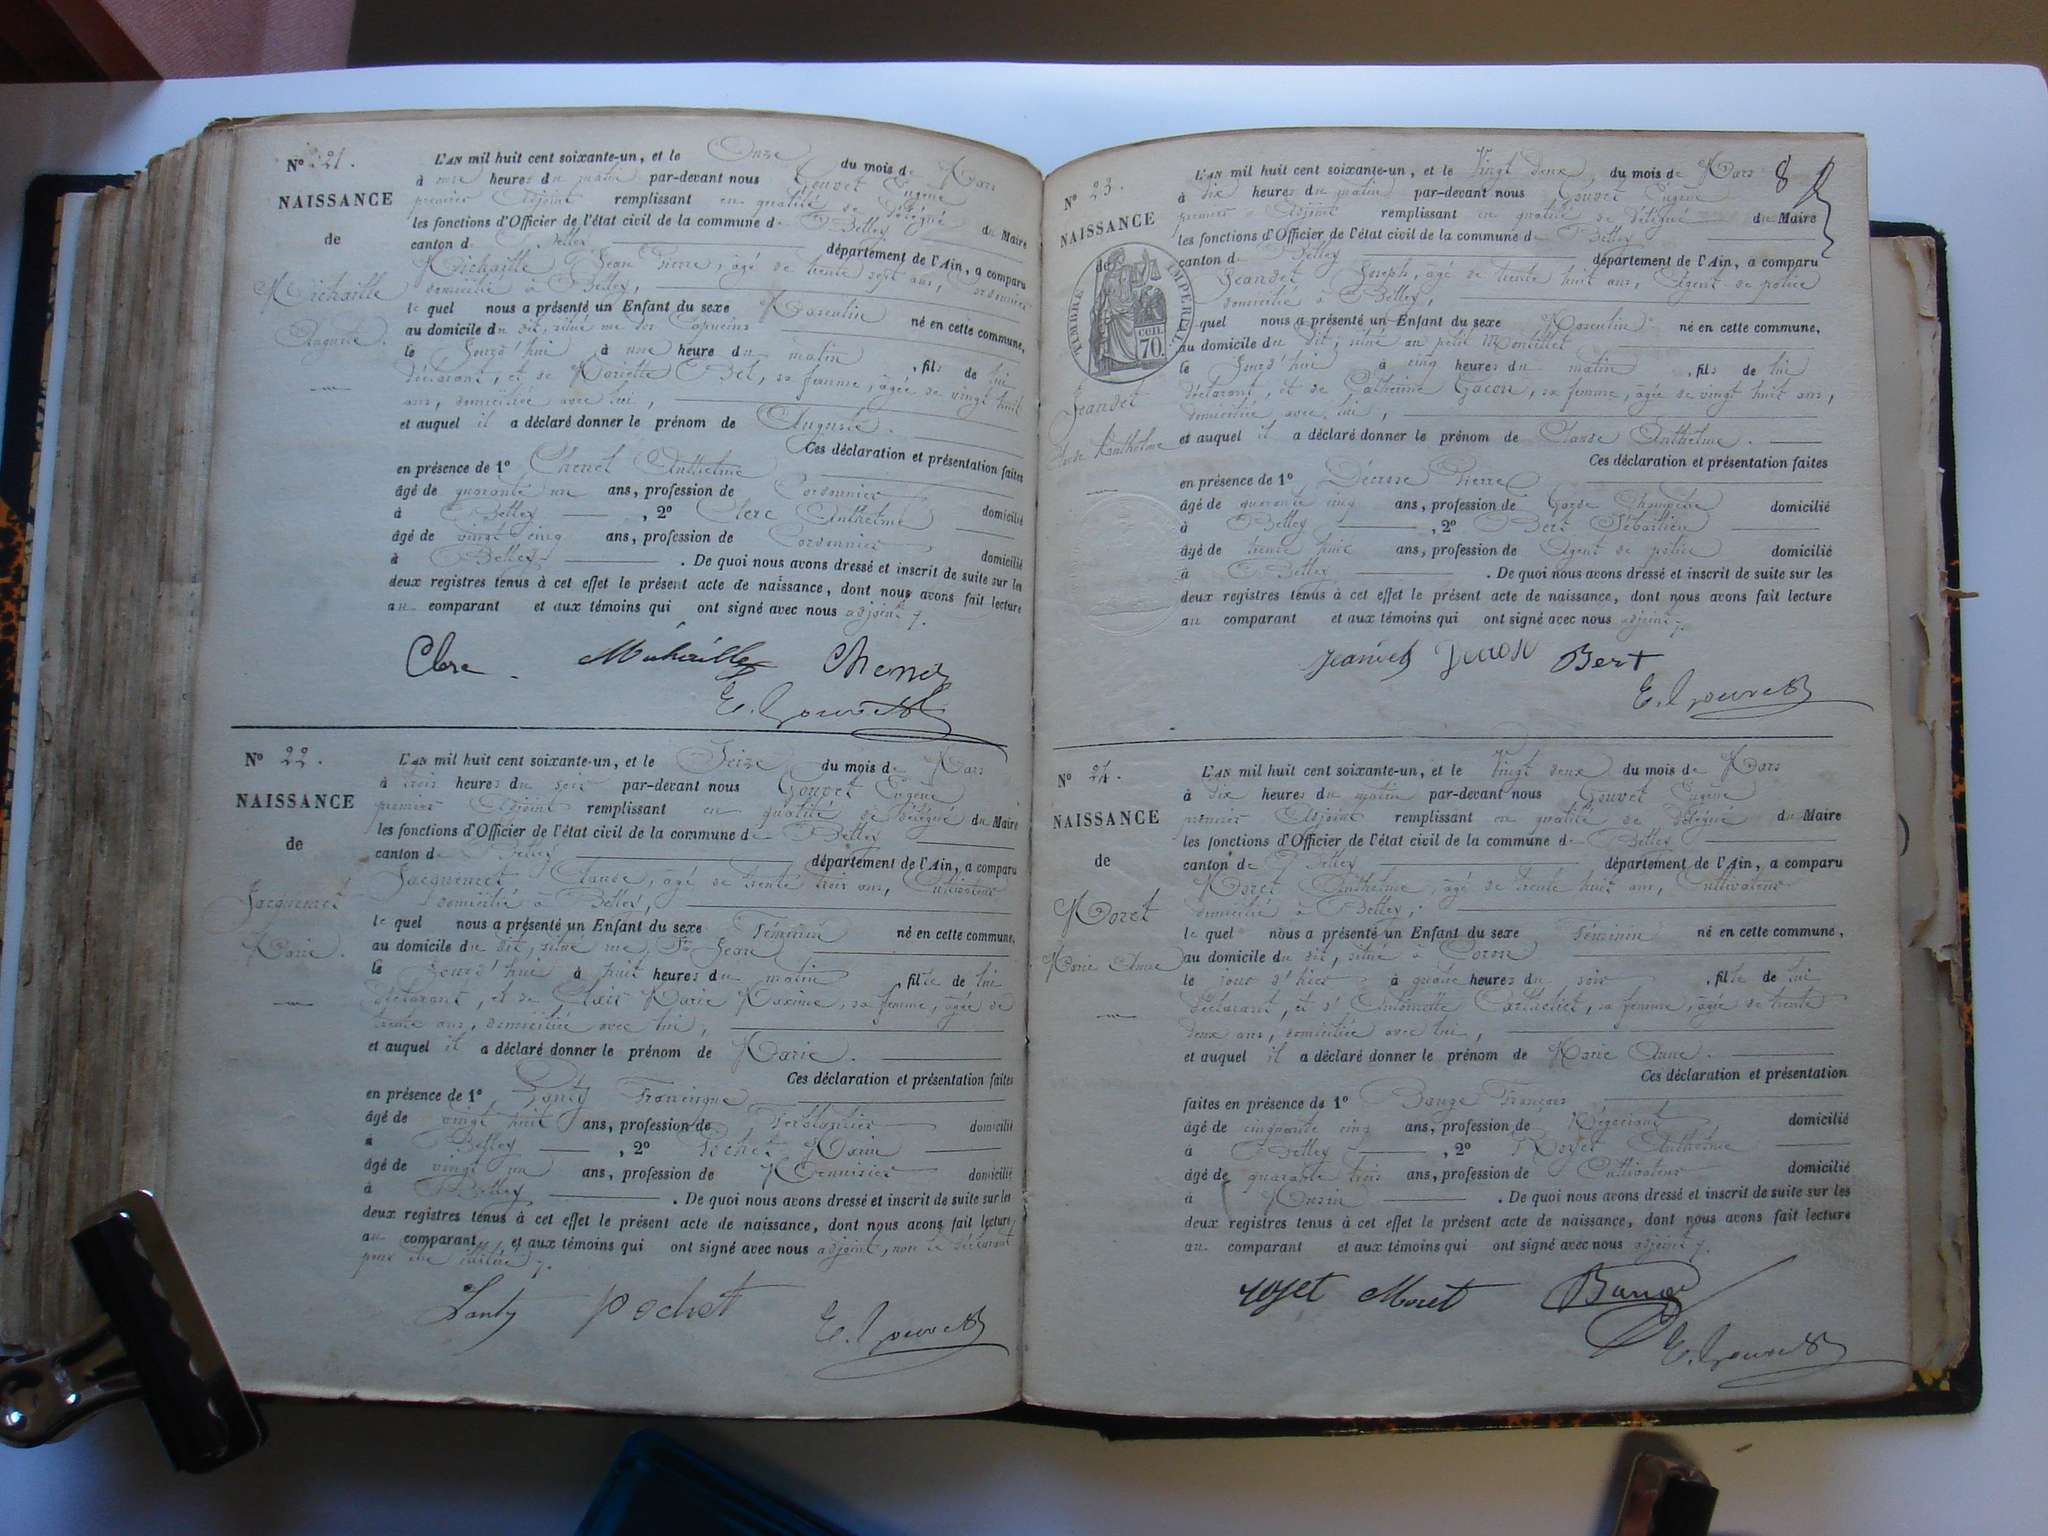 N° 21.
NAISSANCE
de
Michaille
Auguste.
L'AN mil huit cent soixante-un, et le Onze du mois de Mars
à onze heures du matin par-devant nous Gouvet Eugène
premier Adjoint remplissant en qualité de délégué du Maire
les fonctions d'Officier de l'état civil de la commune de Belley
canton de Belley département de l'Ain, a comparu
Michaille Jean Pierre, âgé de trente sept ans, cordonnier
domicilié à Belley,
le quel nous a présenté un Enfant du sexe Masculin né en cette commune,
au domicile du dit, situé rue des Capucins
le Jourd'hui à une heure du matin, fils de lui
déclarant, et de Mariette Bel, sa femme, âgée de vingt huit
ans, domiciliée avec lui,
et auquel il a déclaré donner le prénom de Auguste.
Ces déclaration et présentation faites
en présence de 1° Chenel Anthelme
âgé de quarante un ans, profession de Cordonnier domicilié
à Belley, 2° Clerc Anthelme
âgé de vingt cinq ans, profession de Cordonnier domicilié
à Belley. De quoi nous avons dressé et inscrit de suite sur les
deux registres tenus à cet effet le présent acte de naissance, dont nous avons fait lecture
au comparant et aux témoins qui ont signé avec nous adjoint.
Clerc Michaille Chenel
E. Gouvet
N° 22.
NAISSANCE
de
Jacquemet
Marie.
L'AN mil huit cent soixante-un, et le Seize du mois de Mars
à trois heures du soir par-devant nous Gouvet Eugène
premier Adjoint remplissant en qualité de délégué du Maire
les fonctions d'Officier de l'état civil de la commune de Belley
canton de Belley département de l'Ain, a comparu
Jacquemet Claude, âgé de trente trois ans, Cultivateur
domicilié à Belley,
le quel nous a présenté un Enfant du sexe Féminin né en cette commune,
au domicile du dit, situé rue St Jean
le Jourd'hui à huit heures du matin, fille de lui
déclarant, et de Marie Maxime, sa femme, âgée de
trente ans, domiciliée avec lui,
et auquel il a déclaré donner le prénom de Marie.
Ces déclaration et présentation faites
en présence de 1° Francisque
âgé de vingt huit ans, profession de Ferblantier domicilié
à Belley, 2° Pochet Marin
âgé de vingt un ans, profession de Menuisier domicilié
à Belley. De quoi nous avons dressé et inscrit de suite sur les
deux registres tenus à cet effet le présent acte de naissance, dont nous avons fait lecture
au comparant et aux témoins qui ont signé avec nous adjoint, non le déclarant
pour être illétré.
Pochet E. Gouvet
8
N° 23.
NAISSANCE
de
TIMBRE IMPÉRIAL
CENT. 70.
Jeandet
Claude Anthelme
L'AN mil huit cent soixante-un, et le Vingt deux du mois de Mars
à dix heures du matin par-devant nous Gouvet Eugène
premier Adjoint remplissant en qualité de délégué du Maire
les fonctions d'Officier de l'état civil de la commune de Belley
canton de Belley département de l'Ain, a comparu
Jeandet Joseph, âgé de trente huit ans, Agent de police
domicilié à Belley,
quel nous a présenté un Enfant du sexe Masculin né en cette commune,
au domicile du dit, situé au petit Montillet
le Jourd'hui à cinq heures du matin, fils de lui
déclarant, et de Catherine Gacon, sa femme, âgée de vingt huit ans,
domiciliée avec lui,
et auquel il a déclaré donner le prénom de Claude Anthelme.
Ces déclaration et présentation faites
en présence de 1° Pierre
âgé de quarante cinq ans, profession de Garde Champêtre domicilié
à Belley, 2° Bert Sébastien
âgé de trente huit ans, profession de Agent de police domicilié
à Belley. De quoi nous avons dressé et inscrit de suite sur les
deux registres tenus à cet effet le présent acte de naissance, dont nous avons fait lecture
au comparant et aux témoins qui ont signé avec nous adjoint.
Jeandet Bert
E. Gouvet
N° 24.
NAISSANCE
de
Moret
Marie Anne
L'AN mil huit cent soixante-un, et le Vingt deux du mois de Mars
à dix heures du matin par-devant nous Gouvet Eugène
premier Adjoint remplissant en qualité de délégué du Maire
les fonctions d'Officier de l'état civil de la commune de Belley
canton de Belley département de l'Ain, a comparu
Moret Anthelme, âgé de trente huit ans, Cultivateur
domicilié à Belley,
le quel nous a présenté un Enfant du sexe Féminin né en cette commune,
au domicile du dit, situé à Coron
le jour d'hier à quatre heures du soir, fille de lui
déclarant, et d'Antoinette sa femme, âgée de trente
deux ans, domiciliée avec lui,
et auquel il a déclaré donner le prénom de Marie Anne.
Ces déclaration et présentation
faites en présence de 1° Bauge François
âgé de cinquante cinq ans, profession de Négociant domicilié
à Belley, 2° Royet Anthelme
âgé de quarante trois ans, profession de Cultivateur domicilié
à Musin. De quoi nous avons dressé et inscrit de suite sur les
deux registres tenus à cet effet le présent acte de naissance, dont nous avons fait lecture
au comparant et aux témoins qui ont signé avec nous adjoint.
Moret Bauge
E. Gouvet